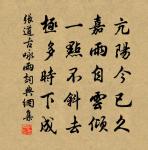 亢陽今已久
嘉雨自雲傾
一點不斜去
極多時下成
張道古詠雨詞典網集